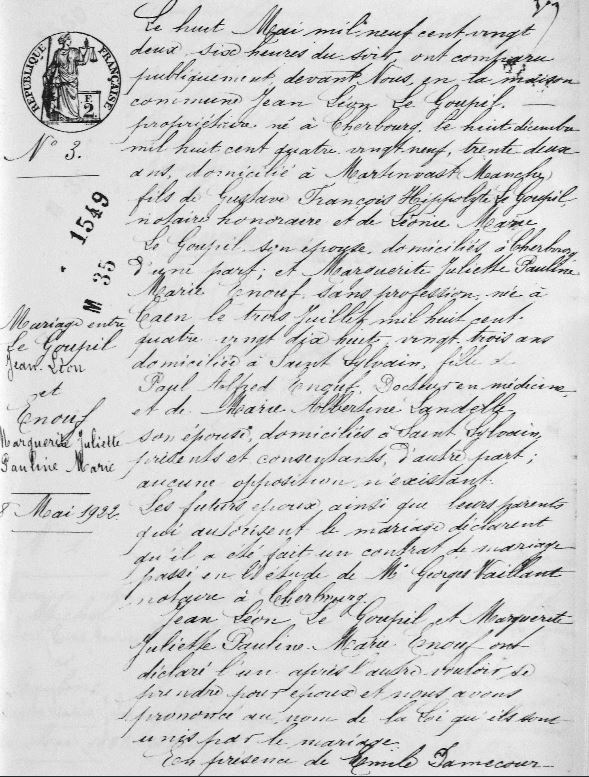 RÉPUBLIQUE FRANÇAISE
F
2
N° 3.
1549
M 35
Mariage entre
Le Goupil
Jean Léon
et
Enouf
Marguerite Juliette
Pauline Marie
8 Mai 1922
Le huit Mai mil neuf cent vingt
deux six heures du soir ont comparu
publiquement devant Nous en la maison
commune Jean Léon Le Goupil. —
propriétaire né à Cherbourg, le huit décembre
mil huit cent quatre vingt neuf, trente deux
ans, domicilié à Martinvast Manche,
fils de Gustave François Hippolyte Le Goupil,
notaire honoraire et de Léonie Marie
Le Goupil son épouse domiciliés à Cherbourg
d'une part; et Marguerite Juliette Pauline
Marie Enouf sans profession, née à
Caen le trois Juillet mil huit cent
quatre vingt dix huit, vingt trois ans
domiciliée à Saint Sylvain, fille de
Paul Alfred Enouf, Docteur en médecine,
et de Marie Albertine Landelle
son épouse, domiciliés à Saint Sylvain,
présents et consentants, d'autre part;
aucune opposition n'existant.
Les futurs époux ainsi que leurs parents
qui autorisent le mariage déclarent
qu'il a été fait un contrat de mariage
passé en l'étude de Me Georges Vaillant
notaire à Cherbourg
Jean Léon Le Goupil et Marguerite
Juliette Pauline Marie Enouf ont
déclaré l'un après l'autre vouloir se
prendre pour époux et nous avons
prononcé au nom de la loi qu'ils sont
unis par le mariage.
En présence de Emile Damecour